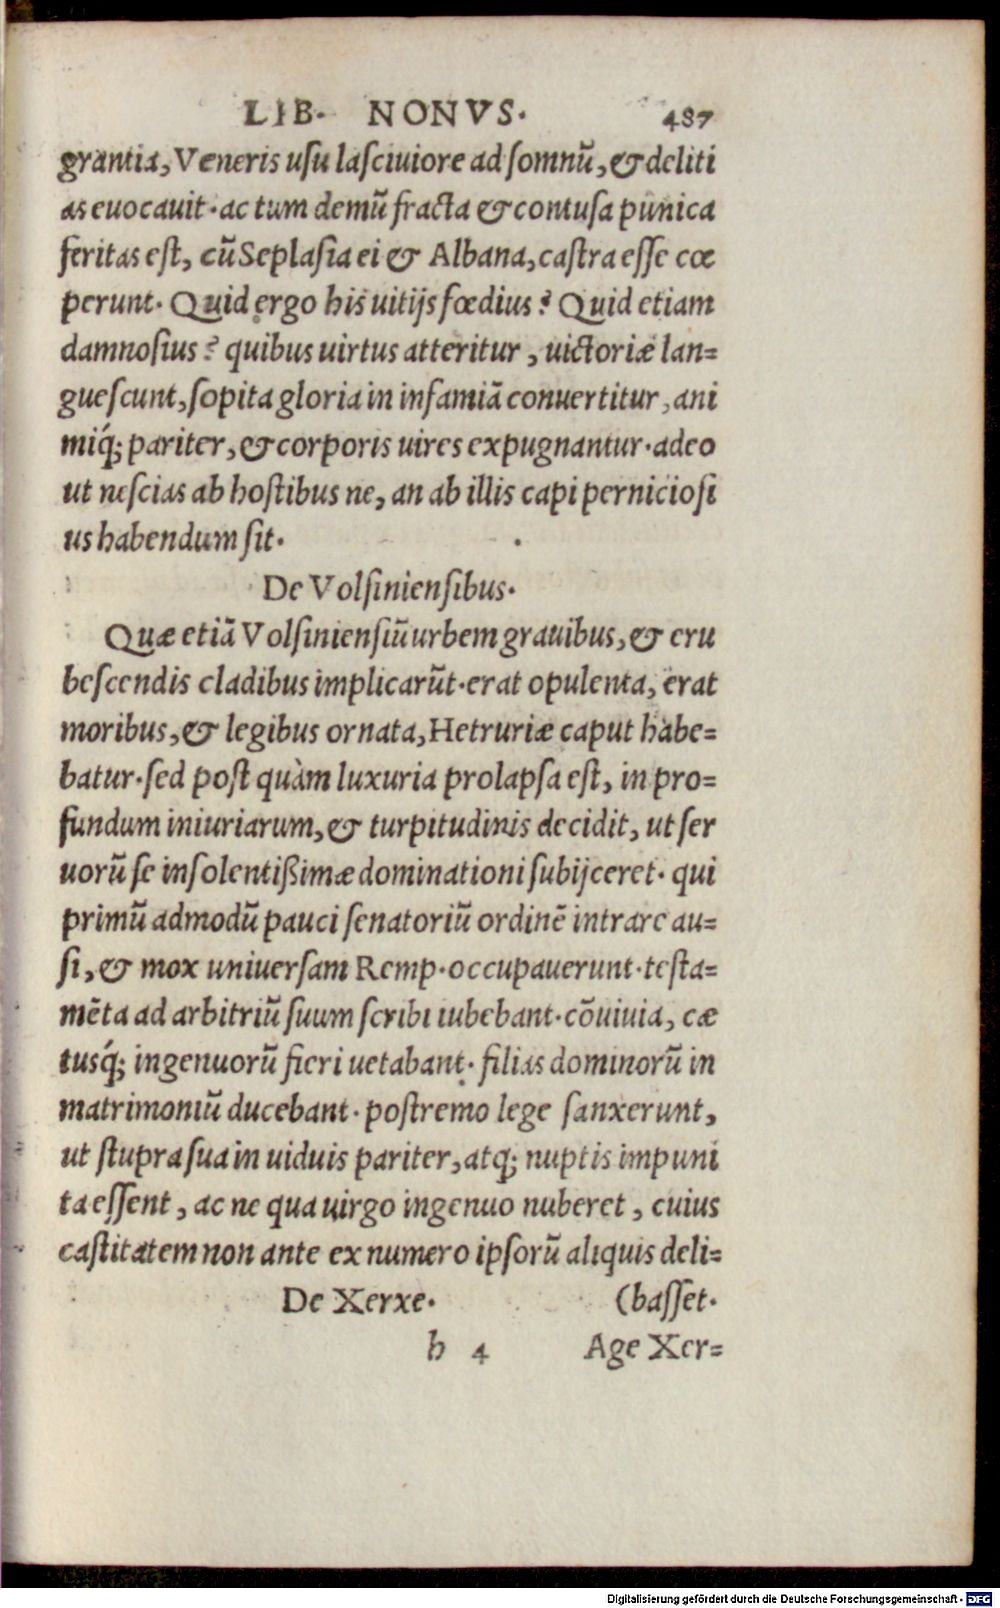 LIB. NONVS. 487
grantia, Veneris usu lasciuiore ad somnũ, & deliti
as euocauit. ac tum demũ fracta & contusa punica
feritas est, cũ Seplasia ei & Albana, castra esse cœ
perunt. Quid ergo his uitijs fœdius? Quid etiam
damnosius? quibus uirtus atteritur, uictoriæ lan=
guescunt, sopita gloria in infamiã conuertitur, ani
miq́; pariter, & corporis uires expugnantur. adeo
ut nescias ab hostibus ne, an ab illis capi perniciosi
us habendum sit.
De Volsiniensibus.
Quæ etiã Volsiniensiũ urbem grauibus, & eru
bescendis cladibus implicarũt. erat opulenta, erat
moribus, & legibus ornata, Hetruriæ caput habe=
batur. sed post quàm luxuria prolapsa est, in pro=
fundum iniuriarum, & turpitudinis decidit, ut ser
uorũ se insolentißimæ dominationi subijceret. qui
primũ admodũ pauci senatoriũ ordinẽ intrare au=
si, & mox uniuersam Remp. occupauerunt. testa=
mẽta ad arbitriũ suum scribi iubebant. cõuiuia, cæ
tusq́; ingenuorũ fieri uetabant. filias dominorũ in
matrimoniũ ducebant. postremo lege sanxerunt,
ut stupra sua in uiduis pariter, atq; nuptis impuni
ta essent, ac ne qua uirgo ingenuo nuberet, cuius
castitatem non ante ex numero ipsorũ aliquis deli=
De Xerxe. (basset.
h 4 Age Xer=
Digitalisierung gefördert durch die Deutsche Forschungsgemeinschaft - DFG